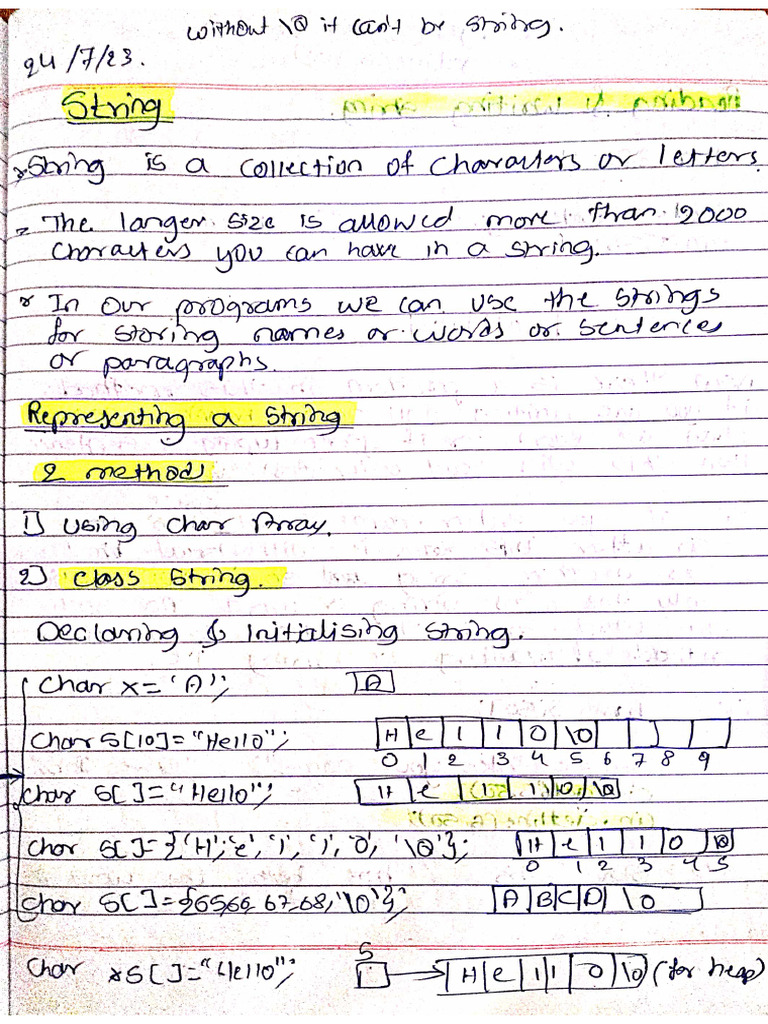 without \0 it can't be string.
24/7/23.
String
String is a collection of characters or letters.
The larger size is allowed more than 2000
characters you can have in a string.
In our programs we can use the strings
for storing names or words or sentences
or paragraphs.
Representing a string
2 method
1] using char Array.
2] class string.
Declaring & Initialising string.
char x = 'A'; A
char S[10] = "Hello"; H e l l o \0
0 1 2 3 4 5 6 7 8 9
char S[ ] = "Hello"; H e l l o \0
char S[ ] = {'H', 'e', 'l', 'l', 'o', '\0'}; H e l l o \0
0 1 2 3 4 5
char S[ ] = {65,66,67,68,'\0'}; A B C D \0
S
char *S[ ] = "Hello"; H e l l o \0 (for heap)